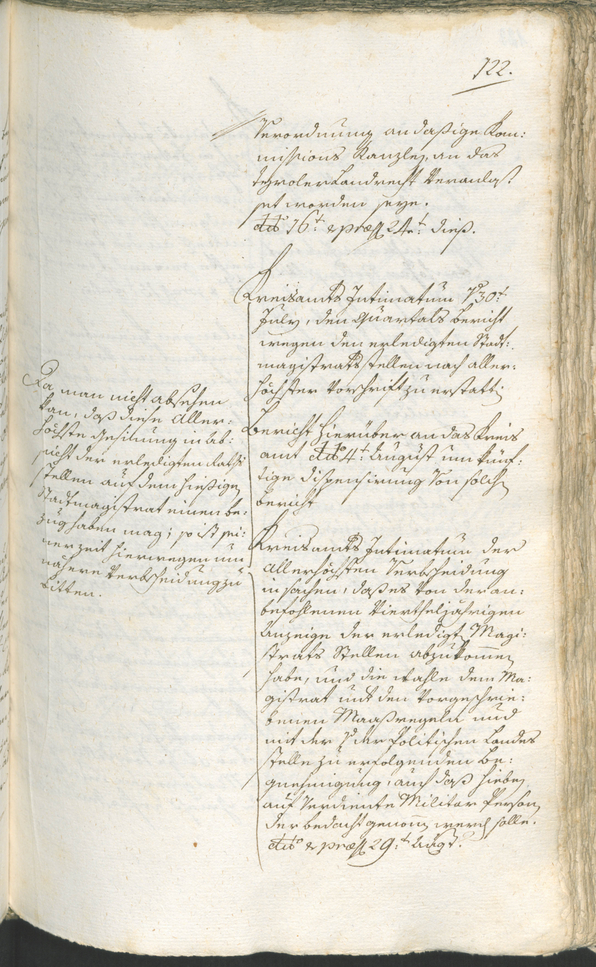 122.
Verordnung an dasige Kom:
missions Kanzley, an das
Tyroler Landrecht veranlas¬
set worden seye.
dto 16t & præs 24t dieß.
Kreisamts Intimatum 30t
July, den Quartals bericht
wegen den erledigten Stadt:
magistratsstellen nach aller:
höchster Vorschrift zu erstatten
Bericht hierüber an das Kreis
amt dto 4t August um künf:
tige Dispensirung von solchen
bericht
Da man nicht absehen
kan, daß diese Aller:
höchste Gesinnung in ab:
sicht der erledigten Raths
stellen auf dem hiesigen
Stadtmagistrat einen be:
zug haben mag; so ist sei:
nerzeit hierwegen um
nähere Verbscheidung zu
bitten.
Kreisamts Intimatum der
allerhöchsten Verbscheidung
in sachen, daß es von der an:
befohlenen viertheljährigen
Anzeige der erledigt. Magi:
strats Stellen abzukommen
habe, und die Wahle dem Ma:
gistrat mit den vorgeschrie:
benen Maaßregeln und
mit der der Politischen Landes
stelle zu erfolgenden Be:
gnehmigung, auch daß hiebey
auf verdiente Militar Person
der bedacht genom̄en werd. solle.
dto & præs 29t Augt.